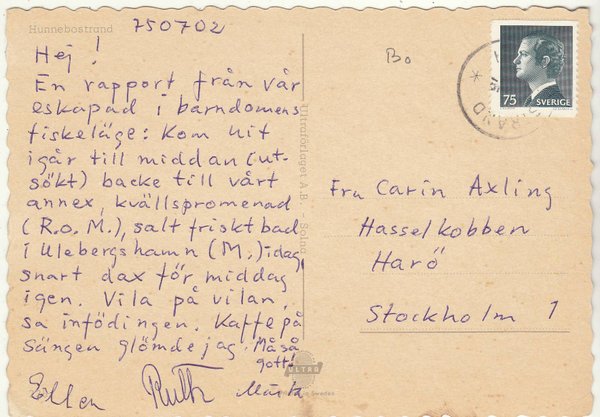 Hunnebostrand
750702
Hej!
En rapport från vår
eskapad i barndomens
fiskeläge: Kom hit
igår till middan (ut-
sökt) backe till vårt
annex, kvällspromenad
(R.o.M.), salt friskt bad
i Ulebergshamn (M.) idag,
snart dax för middag
igen. Vila på vilan,
sa infödingen. Kaffe på
sängen glömde jag. Må så
gott!
Ellen Ruth Märta
Ultraförlaget A.B. Solna
ULTRA
Sweden
Bo
75 SVERIGE
STRAND
Fru Carin Axling
Hasselkobben
Harö
Stockholm 1